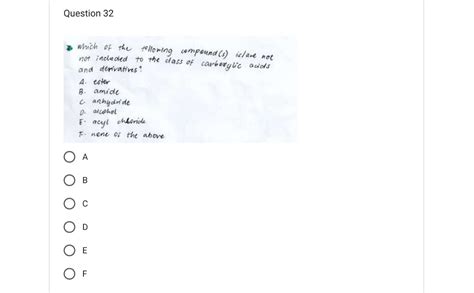 Question 32
Which of the following compound(s) is/are not
not included to the class of carboxylic acids
and derivatives?
A. ester
B. amide
C. anhydride
D. alcohol
E. acyl chloride
F. none of the above
A
B
C
D
E
F